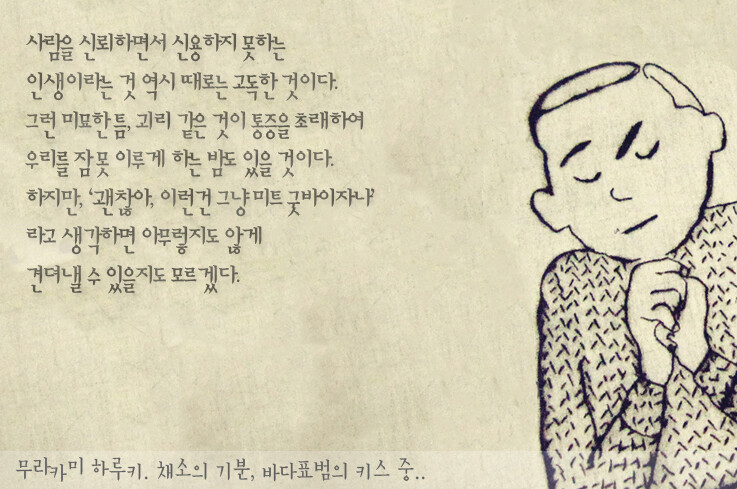 사람을 신뢰하면서 신용하지 못하는
인생이라는 것 역시 때로는 고독한 것이다.
그런 미묘한 틈, 괴리 같은 것이 통증을 초래하여
우리를 잠 못 이루게 하는 밤도 있을 것이다.
하지만, '괜찮아, 이런건 그냥 미트 굿바이자나'
라고 생각하면 아무렇지도 않게
견뎌낼 수 있을지도 모르겠다.
무라카미 하루키. 채소의 기분, 바다표범의 키스 중..